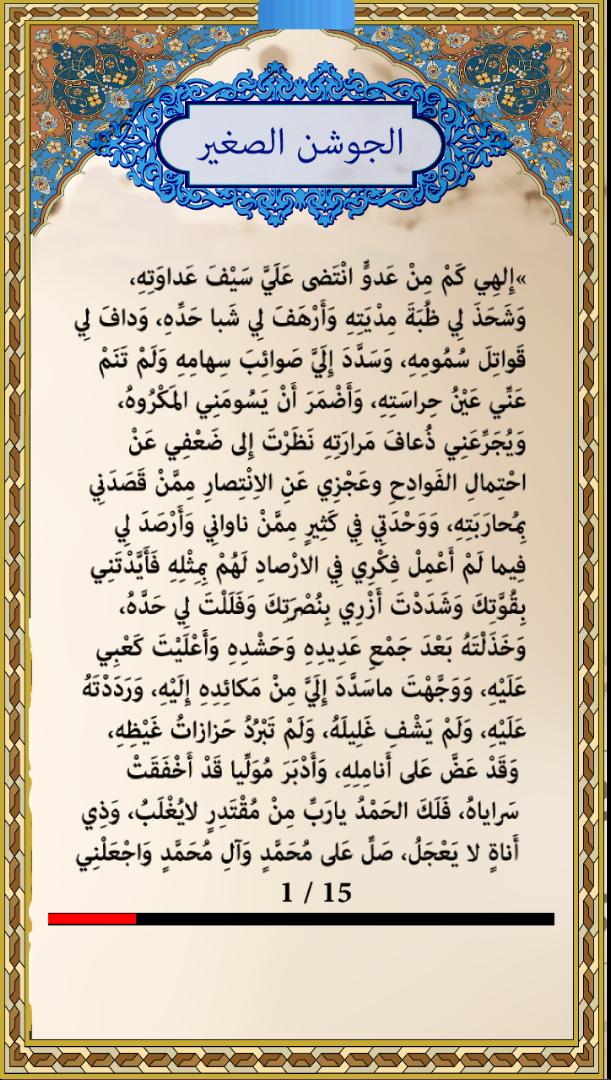 الجوشن الصغير
»إِلهِي كَمْ مِنْ عَدوٍّ انْتَضى عَلَيَّ سَيْفَ عَداوَتِهِ،
وَشَحَذَ لِي ظُبَةَ مِدْيَتِهِ وَأَرْهَفَ لِي شَبا حَدِّهِ، وَدافَ لِي
قَواتِلَ سُمُومِهِ، وَسَدَّدَ إِلَيَّ صَوائِبَ سِهامِهِ وَلَمْ تَنَمْ
عَنِّي عَيْنُ حِراسَتِهِ، وَأَضْمَرَ أَنْ يَسُومَنِي المَكْرُوهُ،
وَيُجَرِّعَنِي ذُعافَ مَرارَتِهِ نَظَرْتَ إِلى ضَعْفِي عَنْ
احْتِمالِ الفَوادِحِ وعَجْزِي عَنِ الاِنْتِصارِ مِمَّنْ قَصَدَنِي
بِمُحارَبَتِهِ، وَوَحْدَتِي فِي كَثِيرٍ مِمَّنْ ناوانِي وَأَرْصَدَ لِي
فِيما لَمْ أَعْمِلْ فِكْرِي فِي الارْصادِ لَهُمْ بِمِثْلِهِ فَأَيَّدْتَنِي
بِقُوَّتِكَ وَشَدَدْتَ أَزْرِي بِنُصْرَتِكَ وَفَلَلْتَ لِي حَدَّهُ،
وَخَذَلْتَهُ بَعْدَ جَمْعِ عَدِيدِهِ وَحَشْدِهِ وَأَعْلَيْتَ كَعْبِي
عَلَيْهِ، وَوَجَّهْتَ ماسَدَّدَ إِلَيَّ مِنْ مَكائِدِهِ إِلَيْهِ، وَرَدَدْتَهُ
عَلَيْهِ، وَلَمْ يَشْفِ غَلِيلَهُ، وَلَمْ تَبْرُدُ حَزازاتُ غَيْظِهِ،
وَقَدْ عَضَّ عَلى أَنامِلِهِ، وَأَدْبَرَ مُوَلِّيا قَدْ أَخْفَقَتْ
سَراياهُ، فَلَكَ الحَمْدُ يارَبِّ مِنْ مُقْتَدِرٍ لايُغْلَبُ، وَذِي
أَناةٍ لا يَعْجَلُ، صَلِّ عَلى مُحَمَّدٍ وَآلِ مُحَمَّدٍ وَاجْعَلْنِي
1 / 15